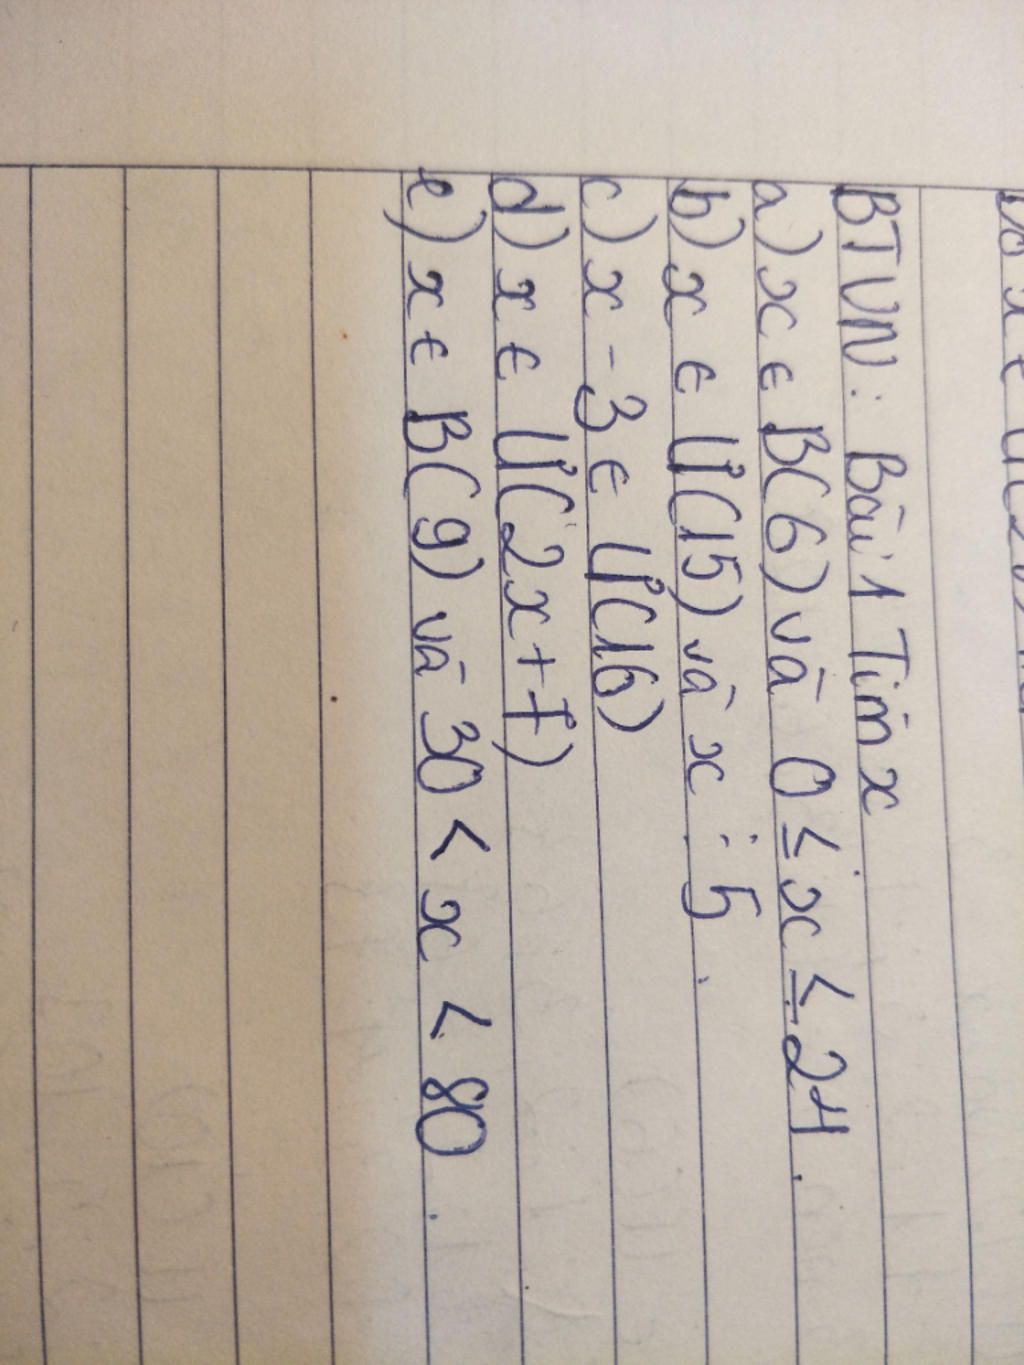 BTVN: Bài 1 Tìm x
a) x ∈ B(6) và 0 ≤ x ≤ 24.
b) x ∈ Ư(15) và x ⋮ 5.
c) x - 3 ∈ Ư(16)
d) x ∈ Ư(2x+7)
e) x ∈ B(9) và 30 < x < 80.